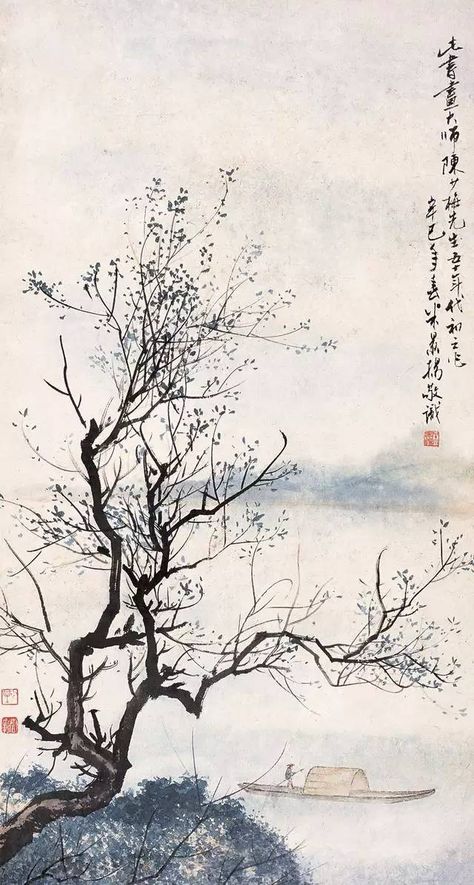 此書畫大師陳少梅先生五十年代初之作
辛巳年春米景揚敬識